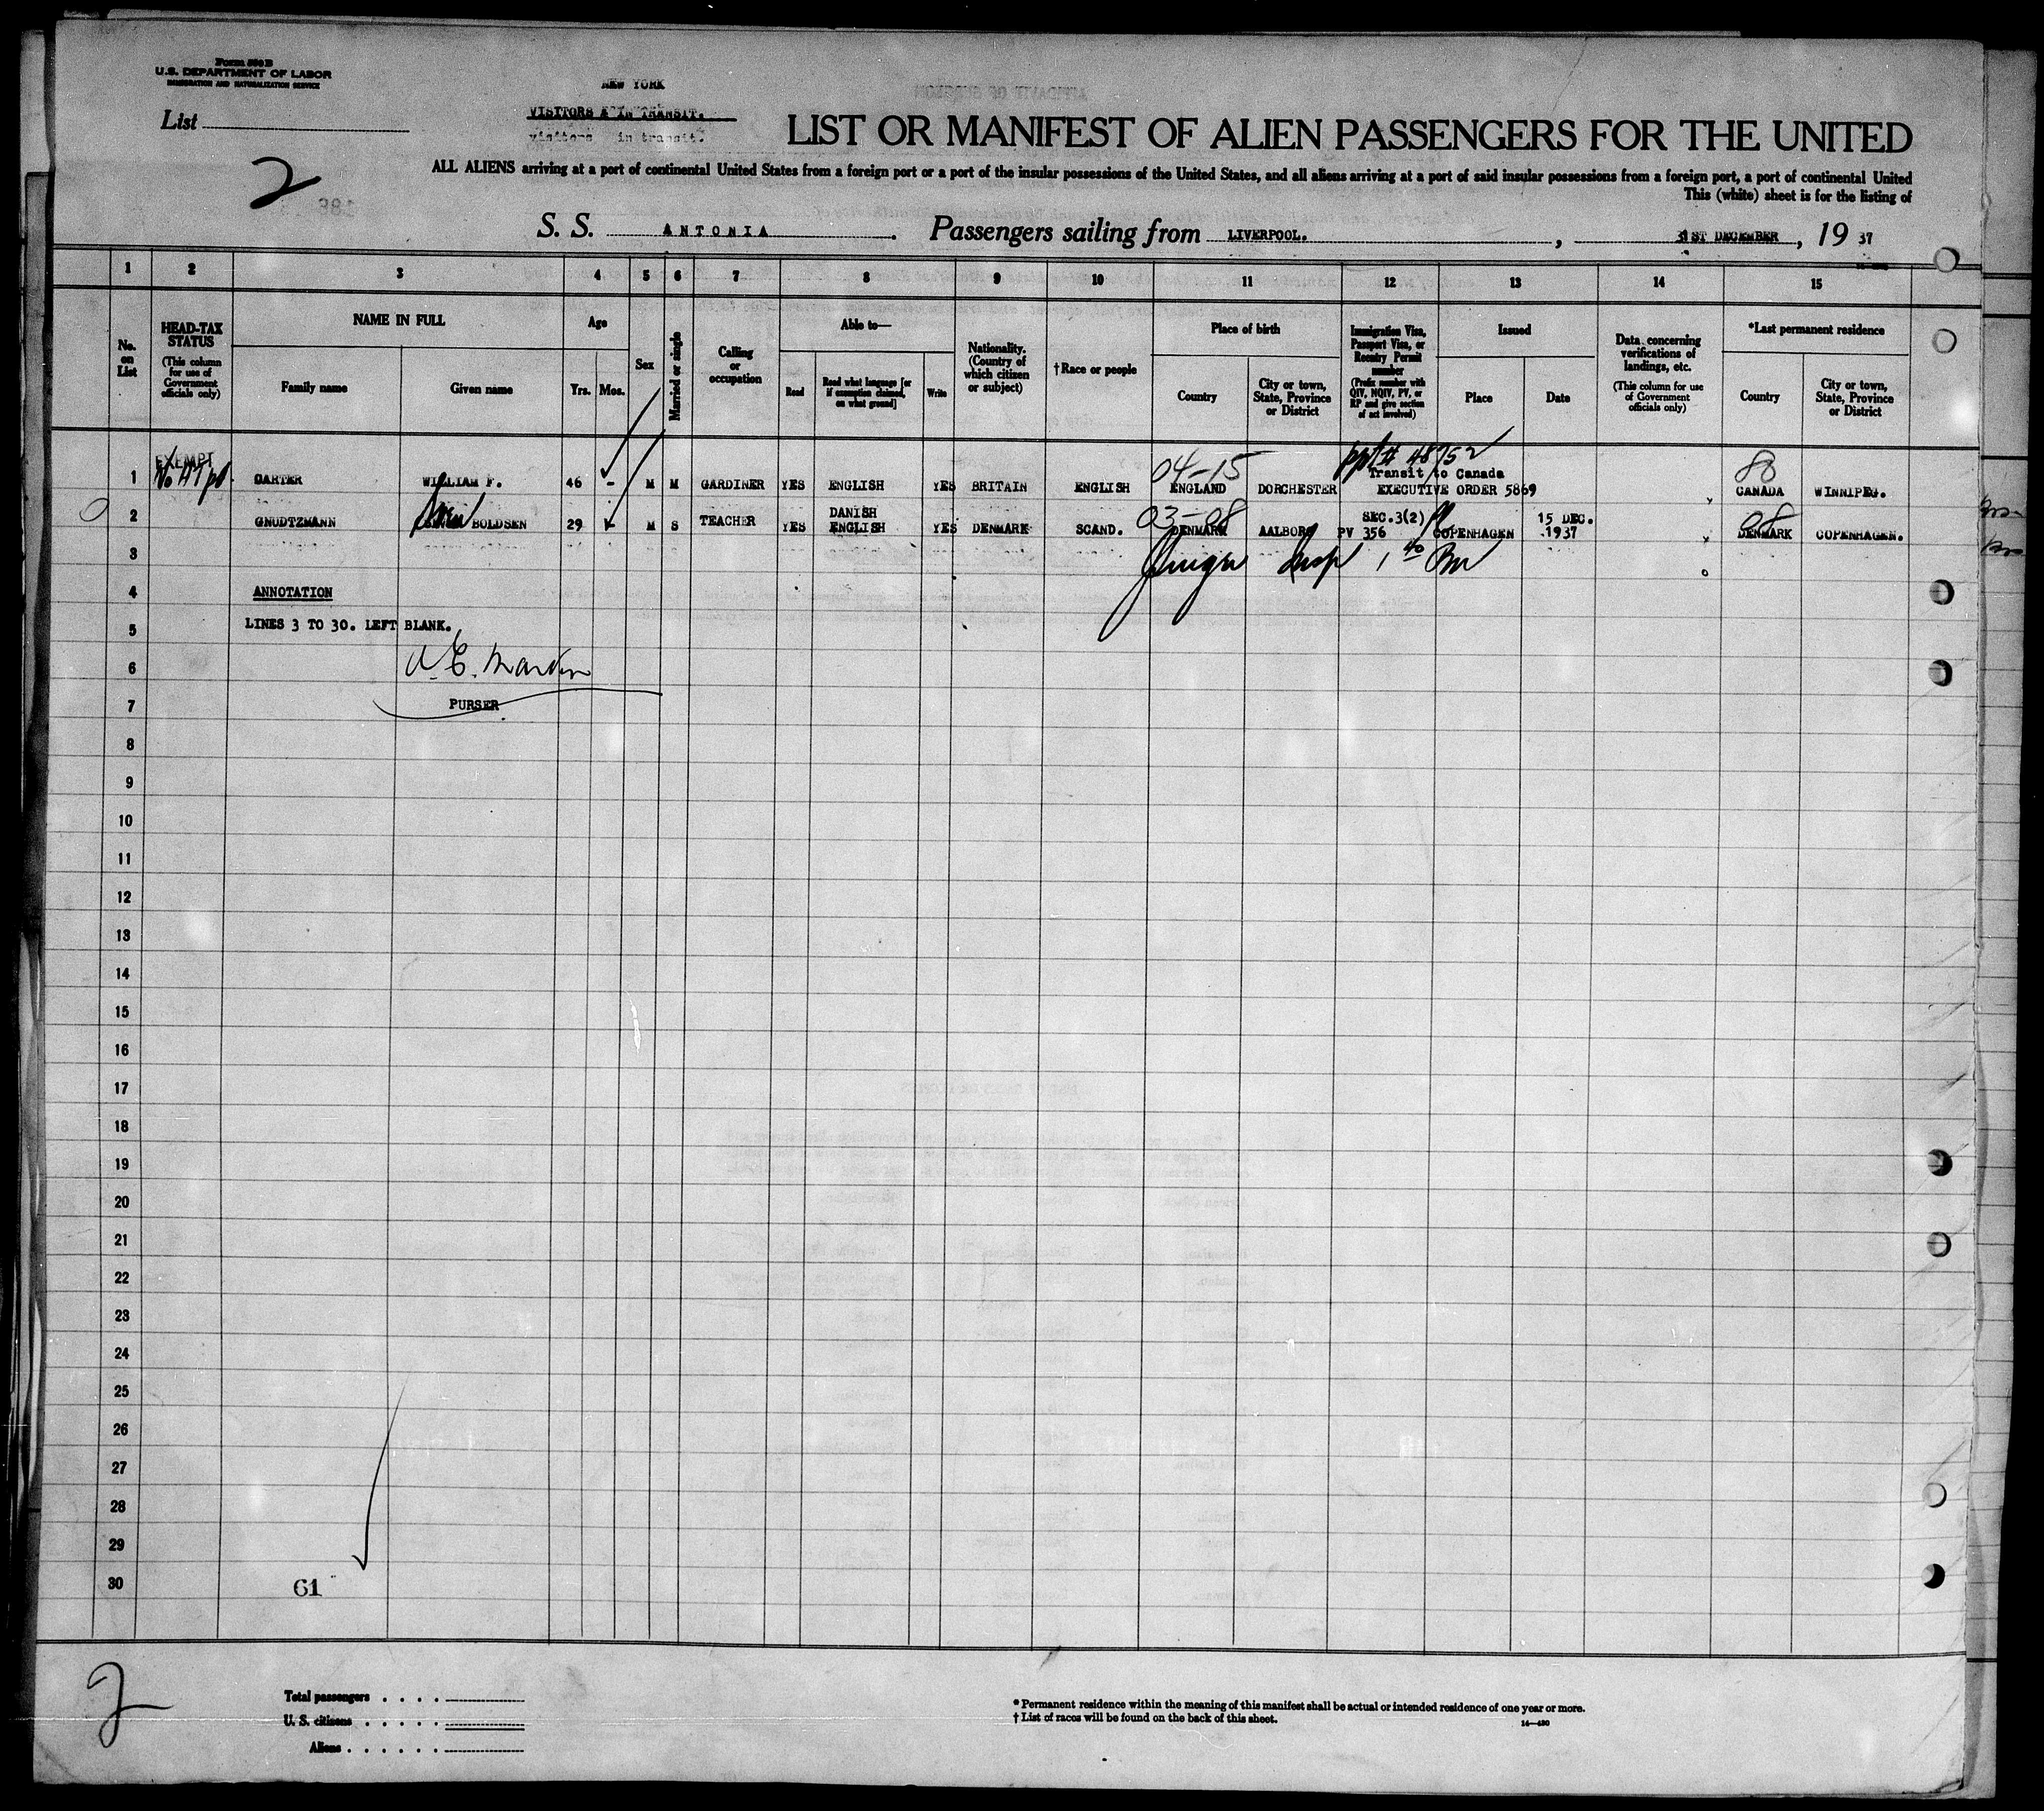 Form 500 B
U.S. DEPARTMENT OF LABOR
IMMIGRATION AND NATURALIZATION SERVICE
List
NEW YORK
VISITORS & IN TRANSIT.
visitors in transit.
2
LIST OR MANIFEST OF ALIEN PASSENGERS FOR THE UNITED
ALL ALIENS arriving at a port of continental United States from a foreign port or a port of the insular possessions of the United States, and all aliens arriving at a port of said insular possessions from a foreign port, a port of continental United
This (white) sheet is for the listing of
S. S. ANTONIA. Passengers sailing from LIVERPOOL. , 31ST DECEMBER , 19 37
1 2 3 4 5 6 7 8 9 10 11 12 13 14 15
No. on List
HEAD-TAX STATUS (This column for use of Government officials only)
NAME IN FULL
Family name Given name
Age
Yrs. Mos.
Sex
Married or single
Calling or occupation
Able to—
Read Read what language [or if exemption claimed, on what ground] Write
Nationality. (Country of which citizen or subject)
†Race or people
Place of birth
Country City or town, State, Province or District
Immigration Visa, Passport Visa, or Reentry Permit number (Prefix number with QIV, NQIV, PV, or RP and give section of act involved)
Issued
Place Date
Data concerning verifications of landings, etc. (This column for use of Government officials only)
*Last permanent residence
Country City or town, State, Province or District
EXEMPT 04-15 ppt # 48752 80
Transit to Canada
1 CARTER WILLIAM F. 46 - M M GARDINER YES ENGLISH YES BRITAIN ENGLISH ENGLAND DORCHESTER EXECUTIVE ORDER 5869 CANADA WINNIPEG.
DANISH 03-08 SEC.3(2) 15 DEC. 08
2 GNUDTZMANN BOLDSEN 29 M S TEACHER YES ENGLISH YES DENMARK SCAND. DENMARK AALBORG PV 356 COPENHAGEN 1937 DENMARK COPENHAGEN.
3
4 ANNOTATION
5 LINES 3 TO 30. LEFT BLANK.
6
7 PURSER
8
9
10
11
12
13
14
15
16
17
18
19
20
21
22
23
24
25
26
27
28
29
30 61
2
Total passengers . . . .
U. S. citizens . . . . .
Aliens . . . . . .
* Permanent residence within the meaning of this manifest shall be actual or intended residence of one year or more.
† List of races will be found on the back of this sheet.
14—480